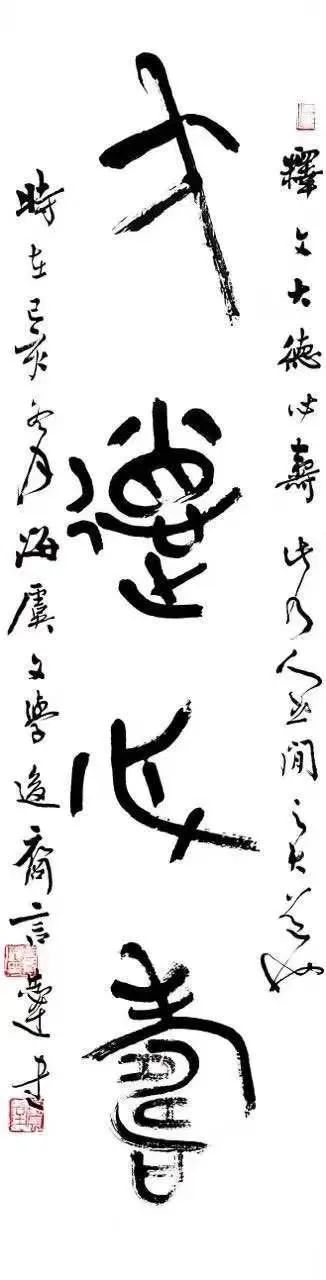 釋文大德必壽此乃人世間之大道也
大德必壽
時在己亥冬月海虞文學後裔言恭達書